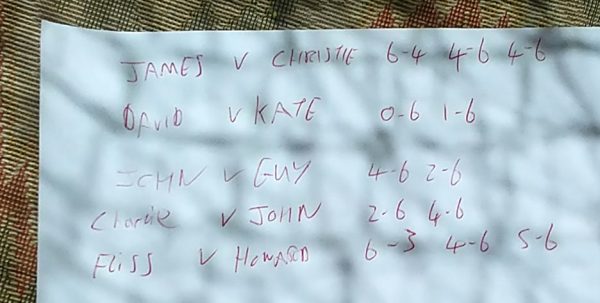 JAMES v CHRISTIE 6-4 4-6 4-6
DAVID v KATE 0-6 1-6
JOHN v GUY 4-6 2-6
Charlie v JOHN 2-6 4-6
FLISS v HOWARD 6-3 4-6 5-6